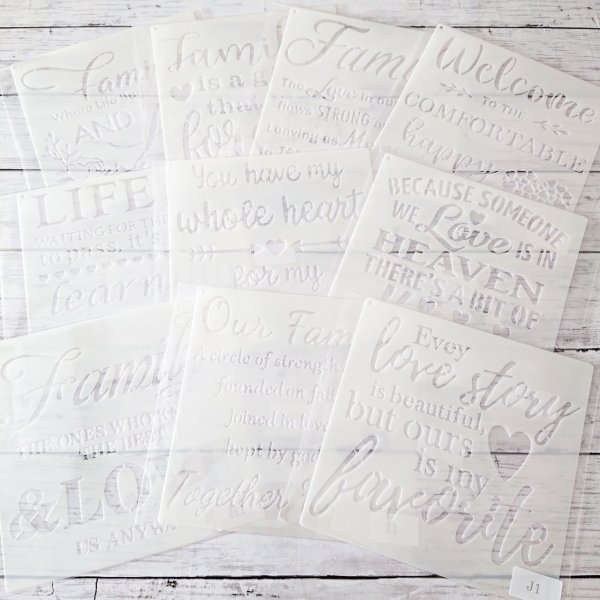 Famil
Where Life
AND
Famil
is a g
that
for
Fami
The Love in our
flows STRONG
Leaving us Me
Welcome
TO THE
COMFORTABLE
happy
LIFE
WAITING FOR THE
to pass, it's
learn
You have my
whole heart
for my
BECAUSE SOMEONE
WE Love IS IN
HEAVEN
THERE'S A BIT OF
Famil
THE ONES WHO K
THE BES
& LO
US ANYWA
Our Fam
A circle of strength
founded on fait
joined in love
kept by god
Together
Evey
love story
is beautiful,
but ours
is my
favorite
J1